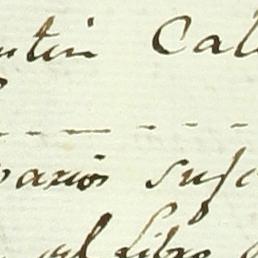 ntin Cal
varios sus
al libro